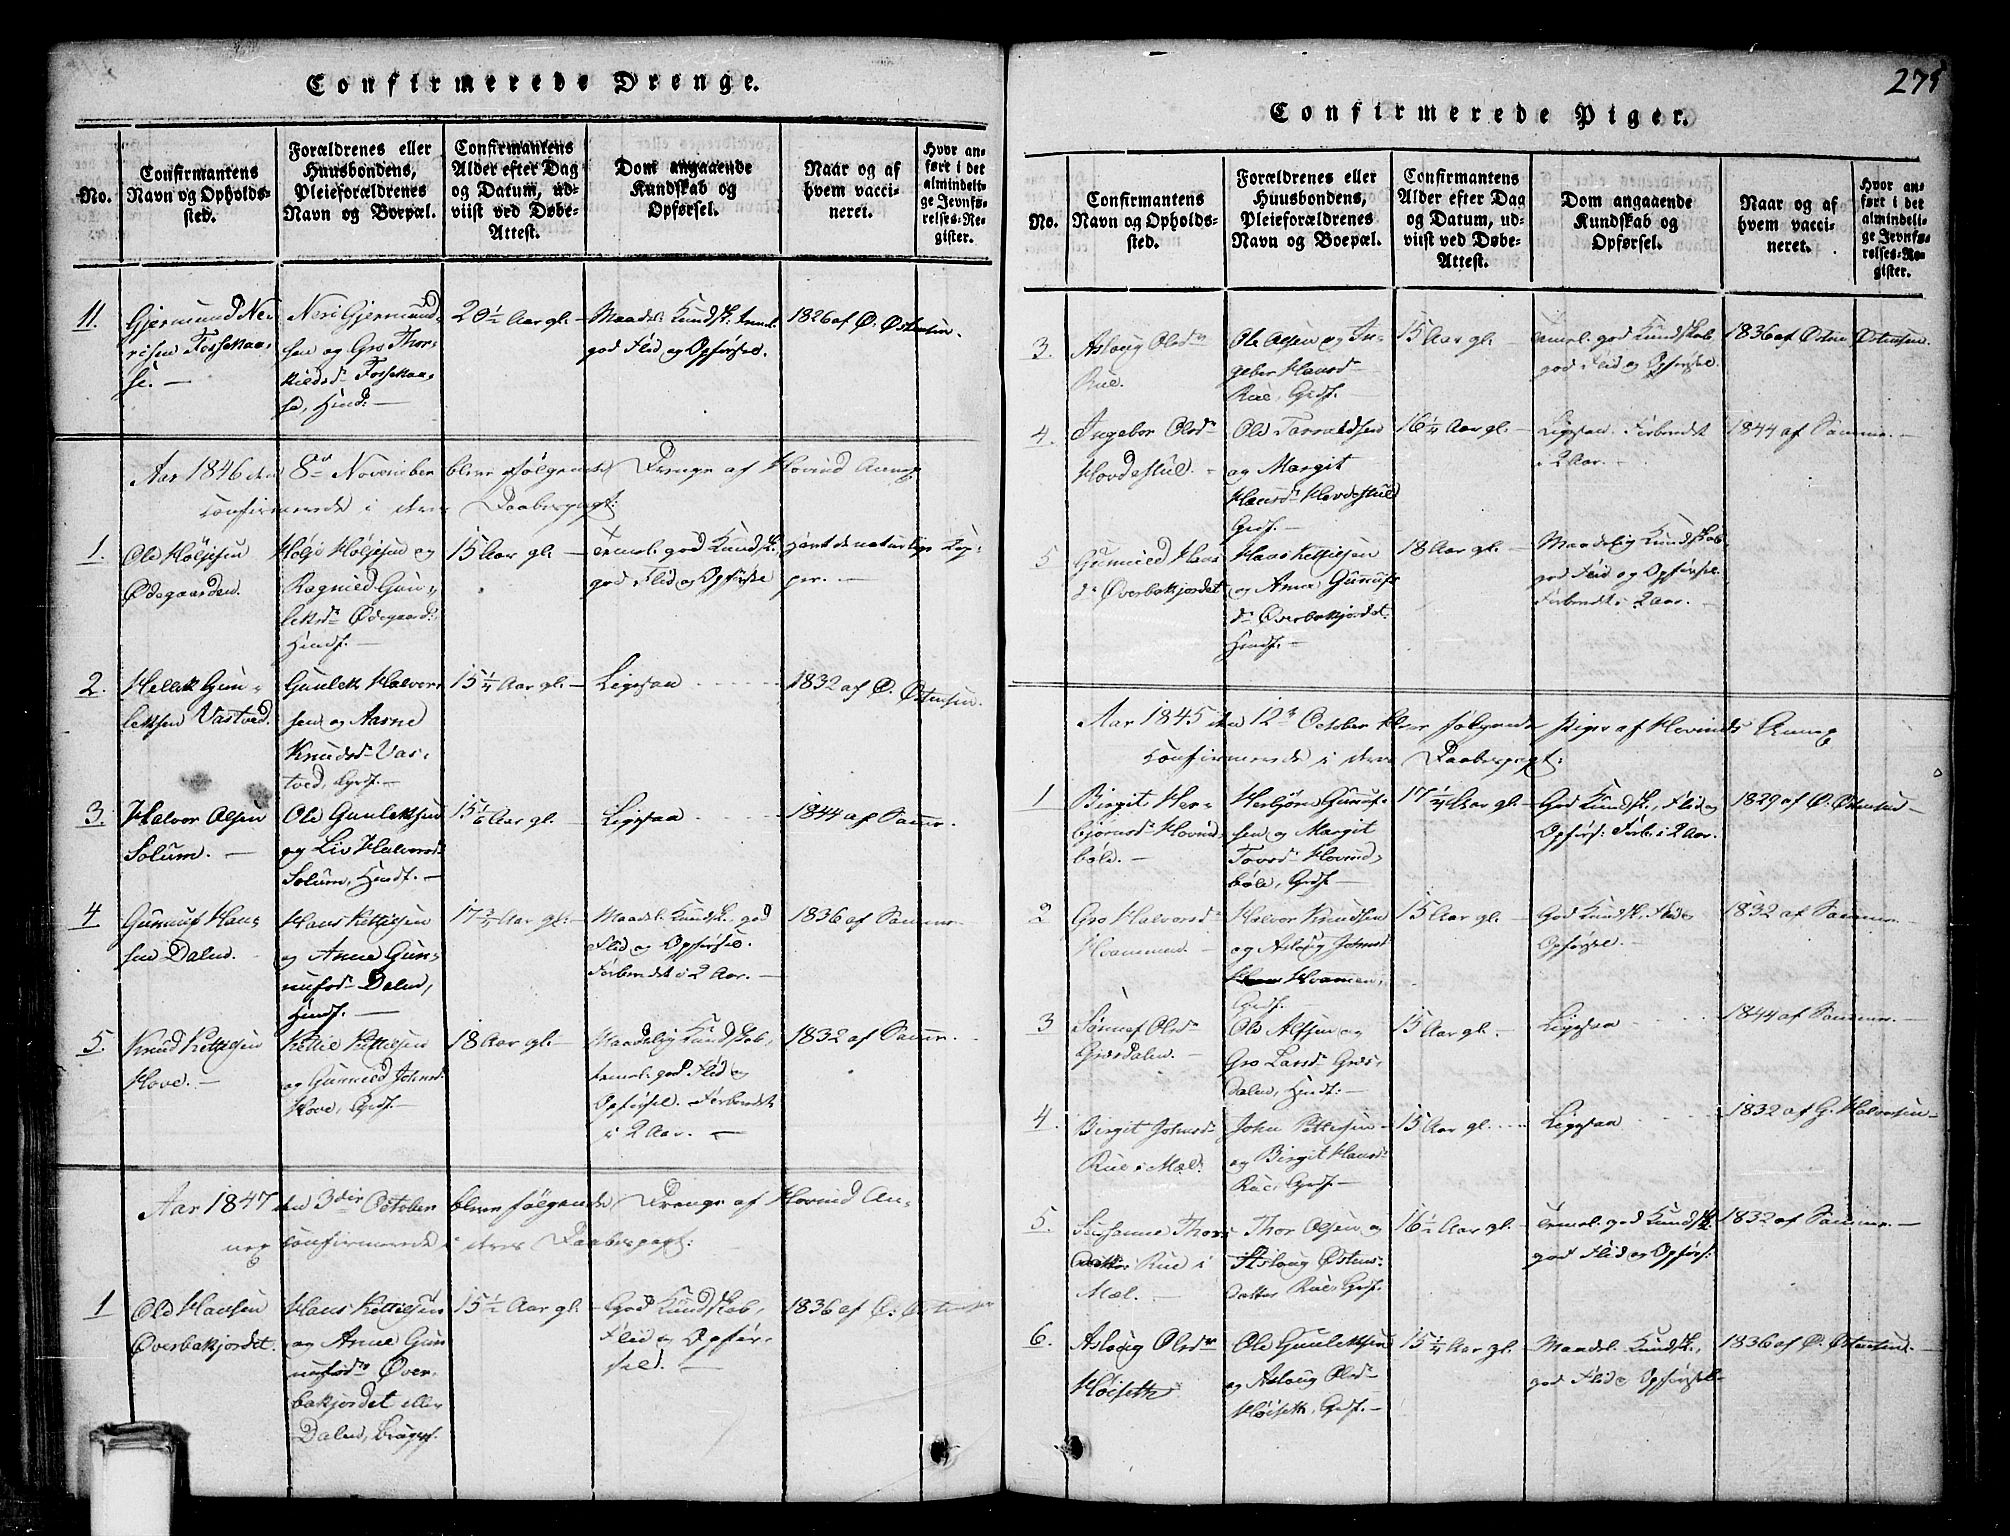 Confirmerede Drenge.
No.
Confirmantens
Navn og Opholds-
sted.
Forældrenes eller
Huusbondens,
Pleieforældrenes
Navn og Boepæl.
Confirmantens
Alder efter Dag
og Datum, ud-
viist ved Døbe-
Attest.
Dom angaaende
Kundskab og
Opførsel.
Naar og af
hvem vacci-
neret.
Hvor an-
ført i det
almindeli-
ge Jevnfø-
relses-Re-
gister.
11.
Gjermund Ne-
risen Fossekaa-
se. —
Neri Gjermund-
sen og Gro Thor-
kildsd Fossekaa-
se, Hind: —
20½ Aar gl. —
Maadel. Kundsk.
god Flid og Opførsel.
1826 af Ø. Østensen.
Aar 1846 den 8de November bleve følgende Drenge af Hovind Annex
confirmerede i deres Daabespagt:
1.
Ole Høljesen
Ødegaarden.
Høljo Høljesen og
Ragnied Gun-
leksd Ødegaard:
Hindf. —
15 Aar gl. —
temel. god Kundsk.
god Flid og Opførsel
Havt de naturlige Kop-
per. —
2.
Hellek Gun-
leksen Vastved.
Gunlek Halvor-
sen og Aarne
Knudsd Vas-
tved, Grdf. —
15¼ Aar gl. —
Ligesaa
1832 af Ø. Østensen.
3.
Halvor Olsen
Solum. —
Ole Gunleksen
og Liv Halvorsd
Solum, Hindf. —
15 1/6 Aar gl. —
Ligesaa
1844 af Samme.
4
Gunuf Han-
sen Dalen.
Hans Kittilsen
og Anne Gun-
nufsd Dalen,
Hindf. —
17 Aar gl. —
Maadel. Kundsk., god
Flid og Opførsel.
Forberedt i 2 Aar. —
1836 af Samme. —
5.
Knud Kittilsen
Hove. —
Kittil Kittilsen
og Gunnied Johnsd
Hove, Grdf. —
18 Aar gl. —
Maadelig Kundskab,
temel. god Flid og
Opførsel. Forberedt
i 2 Aar. —
1832 af Samme. —
Aar 1847 den 3die October bleve følgende Drenge af Hovind An-
nex confirmerede i deres Daabespagt:
1
Ole Hansen
Øverbøkjordet.
Hans Kittilsen
og Anne Gun-
nufsd Øver-
bøkjordet eller
Dalen,
15½ Aar gl. —
God Kundskab,
Flid og Opfør-
sel. —
1836 af Ø. Østensen
275
Confirmerede Piger.
No.
Confirmantens
Navn og Opholds-
sted.
Forældrenes eller
Huusbondens,
Pleieforældrenes
Navn og Boepæl.
Confirmantens
Alder efter Dag
og Datum, ud-
viist ved Døbe-
Attest.
Dom angaaende
Kundskab og
Opførsel.
Naar og af
hvem vacci-
neret.
Hvor an-
ført i det
almindeli-
ge Jevnfø-
relses-Re-
gister.
3.
Aslaug Olsdr
Rue.
Ole Olsen og In-
geber Hansd
Rue, Grdf. —
15 Aar gl. —
temel. god Kundskab
god Flid og Opførsel.
1836 af Østen Østensen.
4.
Ingebor Olsdr
Hovdestul. —
Ole Torvaldsen
og Margit
Hansd Hovdestul
Grdf. —
16¼ Aar gl. —
Ligesaa. Forberedt
i 2 Aar. —
1844 af Samme. —
5
Gunnied Hans
dr Øverbøkjordet
Hans Kittilsen
og Anne Gunufs
dr Øverbøkjordet
Hindf. —
18 Aar gl. —
Maadelig Kundskab,
god Flid og Opførsel.
Forberedt i 2 Aar. —
Aar 1845 den 12te October bleve følgende Piger af Hovinds Annex
confirmerede i deres Daabespagt:
1
Birgit Her-
bjørnsd Hovind-
bøle. —
Herbjørn Gunuf-
sen og Margit
Tovsd Hovind-
bøle, Grdf. —
17¼ Aar gl. —
God Kundsk., Flid og
Opførs: Forb. i 2 Aar.
1829 af Ø. Østensen —
2
Gro Halvorsdr
Hvammen. —
Halvor Knudsen
og Aslaug Johnsd
Hvammen,
Grdf. —
15 Aar gl. —
God Kundsk., Flid og
Opførsel. —
1832 af Samme. —
3
Sønnef Olsdr
Græsdalen. —
Ole Alfsen og
Gro Larsd Græs-
dalen, Hindf. —
15 Aar gl. —
Ligesaa
1844 af Samme. —
4.
Birgit Johnsdr
Rue i Mæl.
John Pettersen
og Birgit Hansd
Rue, Grdf. —
15 Aar gl.
Ligesaa
1832 af G. Halvorsen —
5.
Susanne Thors-
datter Rue i
Mæl. —
Thor Olsen og
Aslaug Østens-
datter Rue, Grdf. —
16½ Aar gl. —
temel. god Kundsk.
god Flid og Opførs:
1832 af Samme. —
6.
Aslaug Olsdr
Høiseth
Ole Gunleksen
og Aslaug Olsd
Høiseth, Grdf. —
15¼ Aar gl. —
Maadel. Kundsk.,
god Flid og Opførsel —
1836 af Ø. Østensen. —